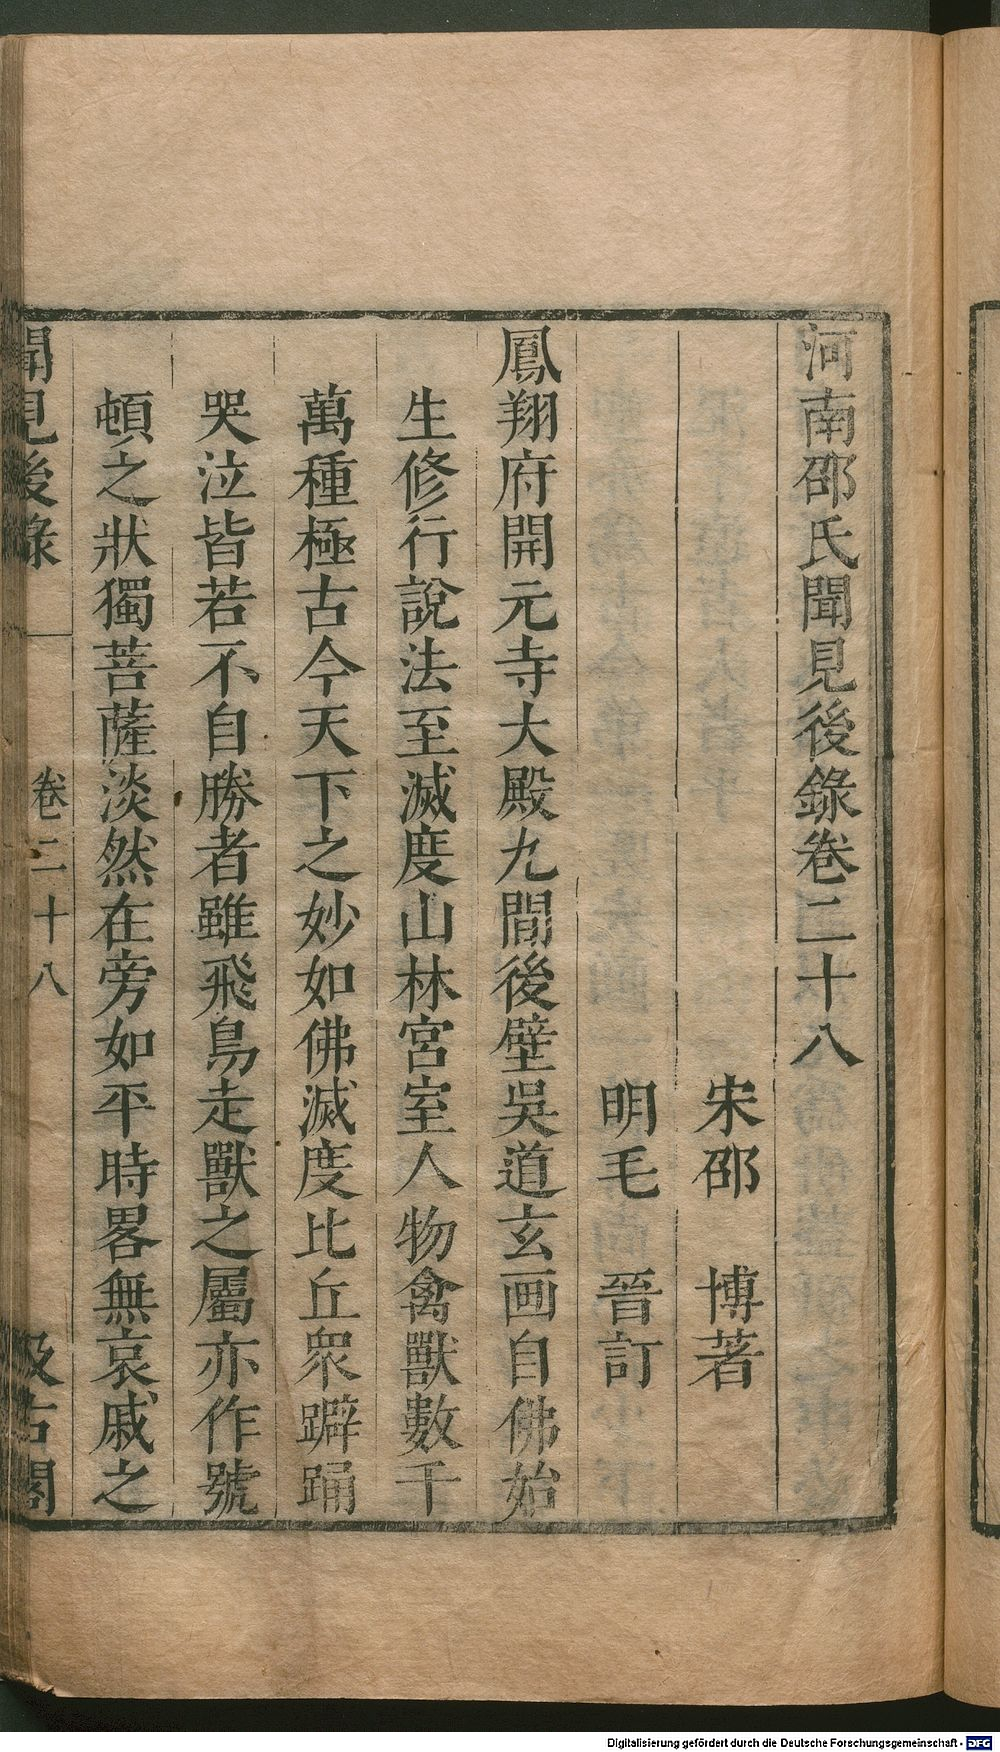 河南邵氏聞見後錄卷二十八
宋邵　博著
明毛　晉訂
鳳翔府開元寺大殿九間後壁吳道玄画自佛始
生修行說法至滅度山林宮室人物禽獸數千
萬種極古今天下之妙如佛滅度比丘衆躃踊
哭泣皆若不自勝者雖飛鳥走獸之屬亦作號
頓之狀獨菩薩淡然在旁如平時畧無哀戚之
聞見後錄　卷二十八　汲古閣
Digitalisierung gefördert durch die Deutsche Forschungsgemeinschaft - DFG